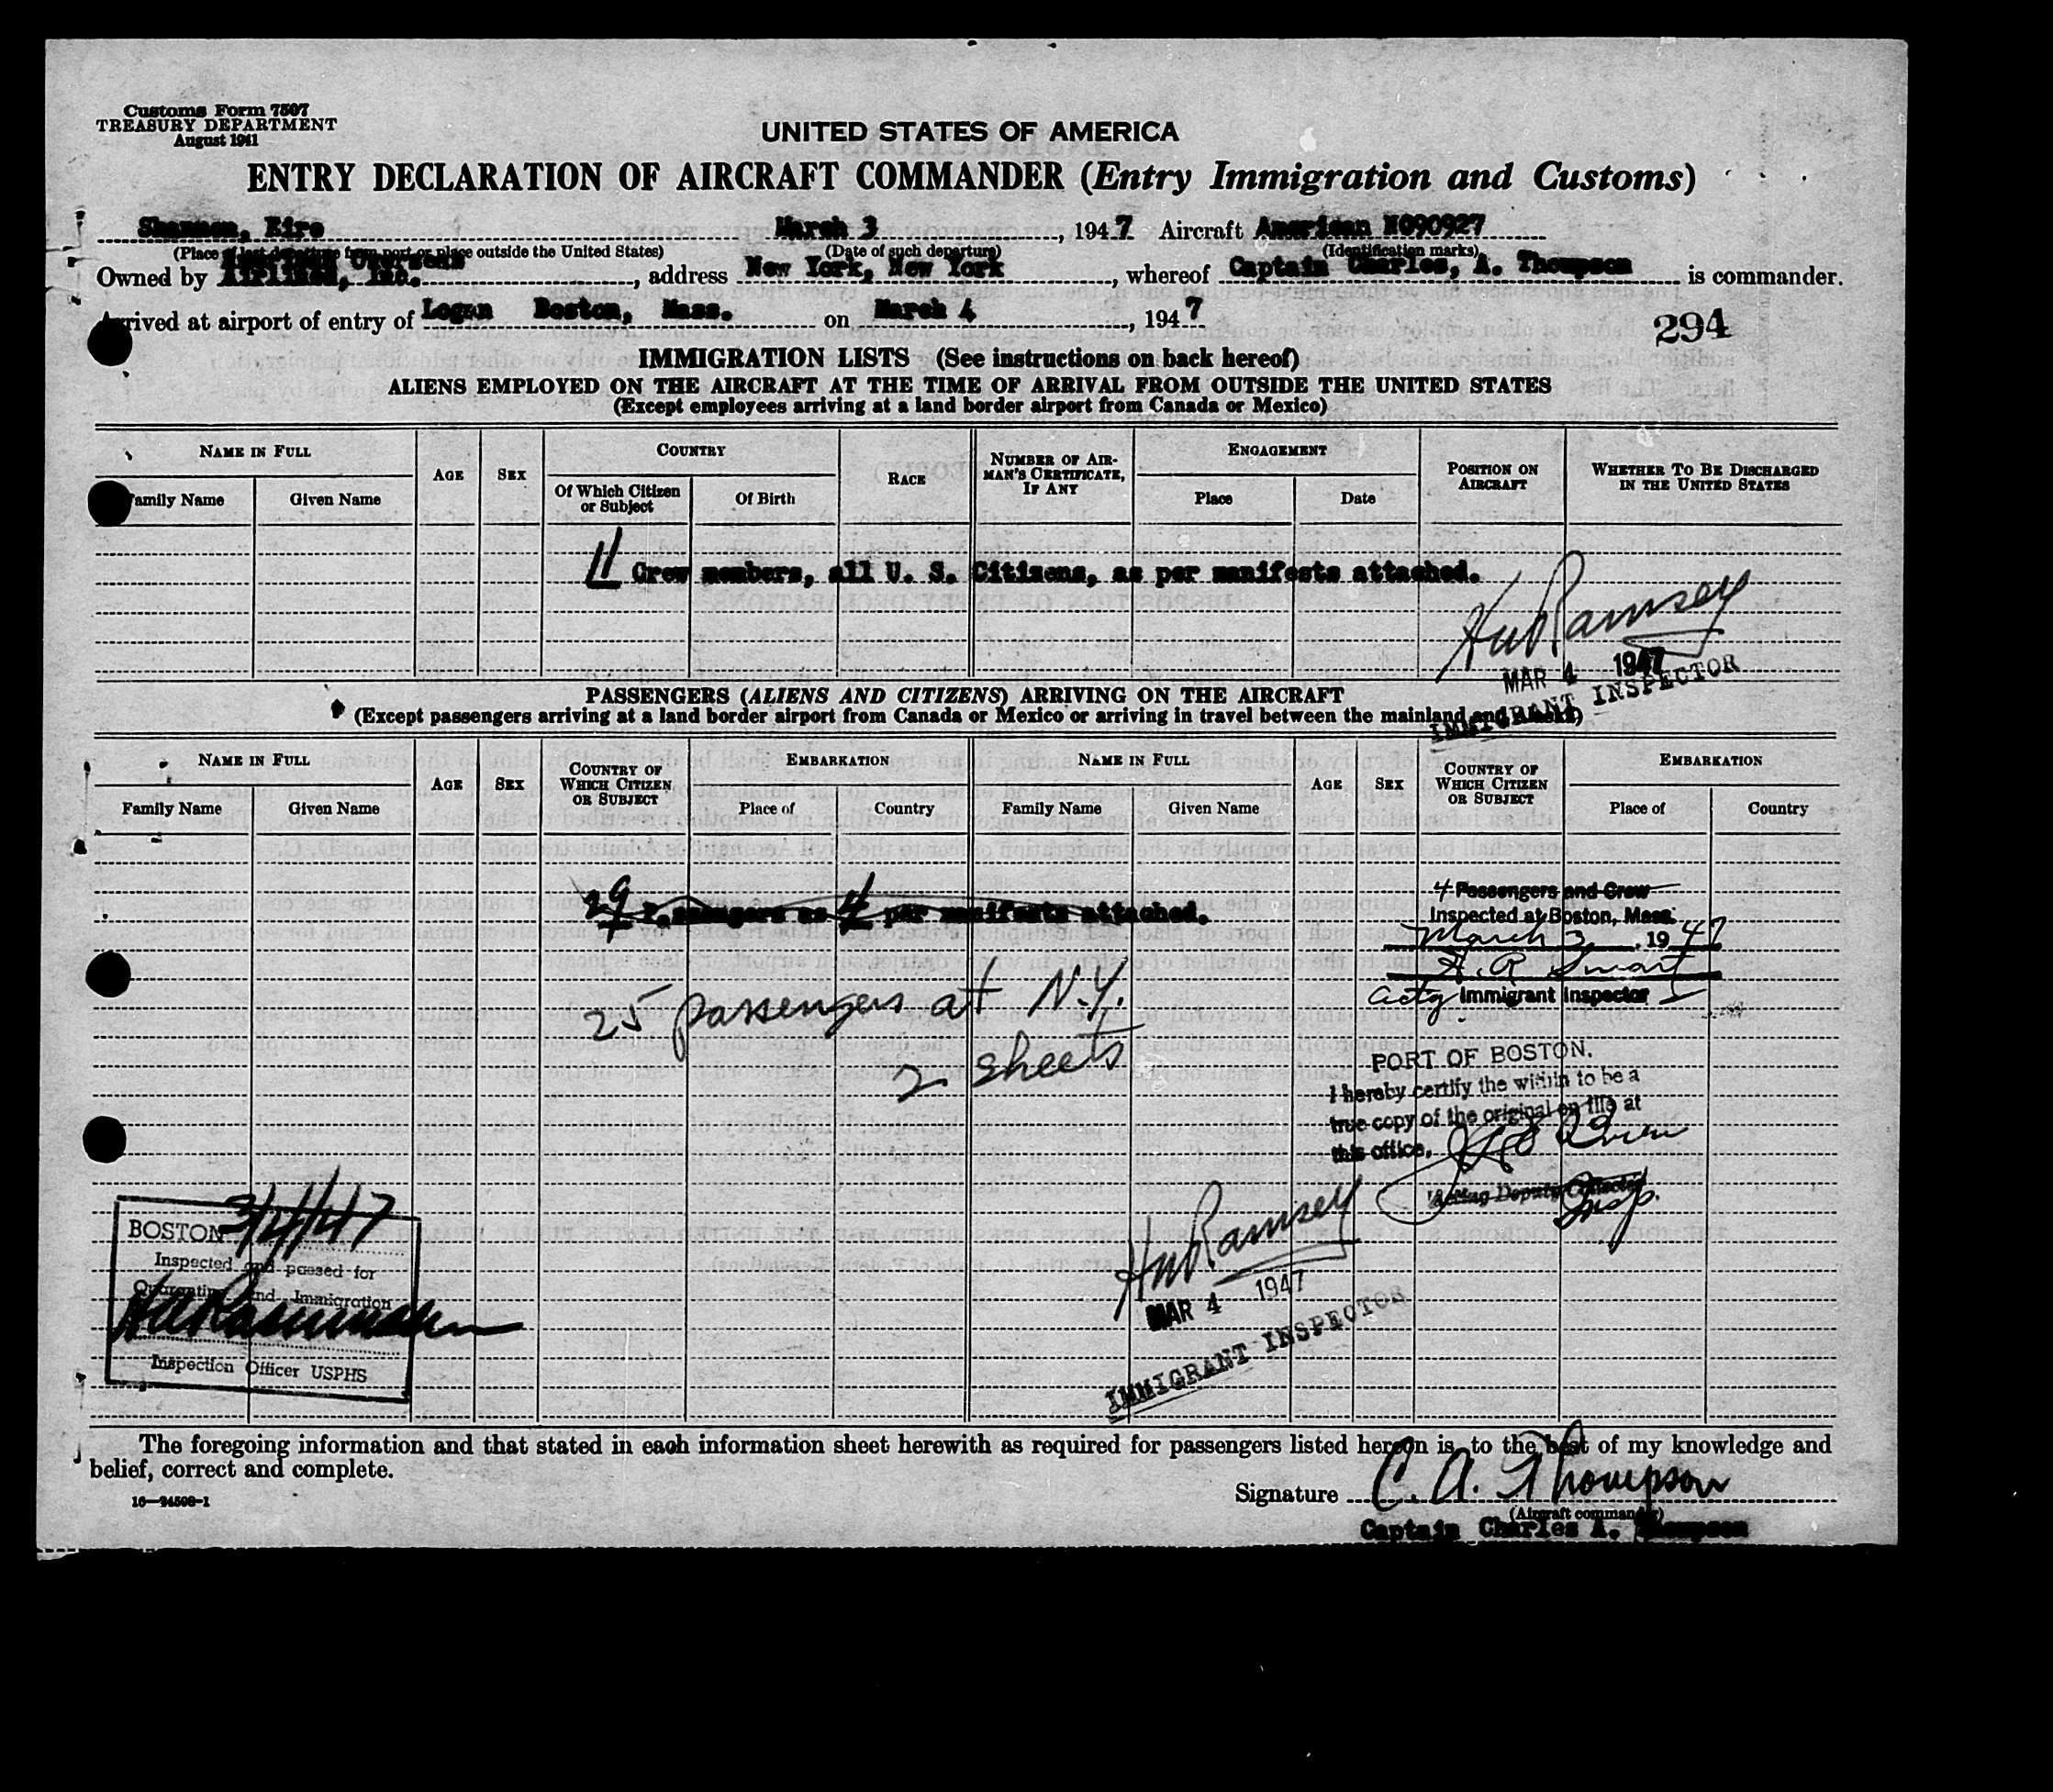 Customs Form 7507
TREASURY DEPARTMENT
August 1941
UNITED STATES OF AMERICA
ENTRY DECLARATION OF AIRCRAFT COMMANDER (Entry Immigration and Customs)
Shannon, Eire March 3, 1947 Aircraft American NC90927
(Place of last departure from port or place outside the United States) (Date of such departure) (Identification marks)
American Overseas
Owned by Airlines, Inc., address New York, New York, whereof Captain Charles, A. Thompson is commander.
Arrived at airport of entry of Logan Boston, Mass. on March 4, 1947
294
IMMIGRATION LISTS (See instructions on back hereof)
ALIENS EMPLOYED ON THE AIRCRAFT AT THE TIME OF ARRIVAL FROM OUTSIDE THE UNITED STATES
(Except employees arriving at a land border airport from Canada or Mexico)
NAME IN FULL AGE SEX COUNTRY RACE NUMBER OF AIRMAN'S CERTIFICATE, IF ANY ENGAGEMENT POSITION ON AIRCRAFT WHETHER TO BE DISCHARGED IN THE UNITED STATES
Family Name Given Name Of Which Citizen or Subject Of Birth Place Date
11 Crew members, all U. S. Citizens, as per manifests attached.
Ramsey
MAR 4 1947
IMMIGRANT INSPECTOR
PASSENGERS (ALIENS AND CITIZENS) ARRIVING ON THE AIRCRAFT
(Except passengers arriving at a land border airport from Canada or Mexico or arriving in travel between the mainland and Alaska)
NAME IN FULL AGE SEX COUNTRY OF WHICH CITIZEN OR SUBJECT EMBARKATION NAME IN FULL AGE SEX COUNTRY OF WHICH CITIZEN OR SUBJECT EMBARKATION
Family Name Given Name Place of Country Family Name Given Name Place of Country
29 Passengers as per manifests attached.
4 Passengers and Crew
Inspected at Boston, Mass.
March 3, 1947
A. R. Smart
Actg Immigrant Inspector
25 passengers at N.Y.
2 sheets
PORT OF BOSTON.
I hereby certify the within to be a
true copy of the original on file at
this office,
Acting Deputy Collector
Insp.
Ramsey
MAR 4 1947
IMMIGRANT INSPECTOR
BOSTON 3/4/47
Inspected and passed for
Quarantine and Immigration
Inspection Officer USPHS
The foregoing information and that stated in each information sheet herewith as required for passengers listed hereon is, to the best of my knowledge and
belief, correct and complete.
16—24508-1
Signature C. A. Thompson
(Aircraft commander)
Captain Charles A. Thompson